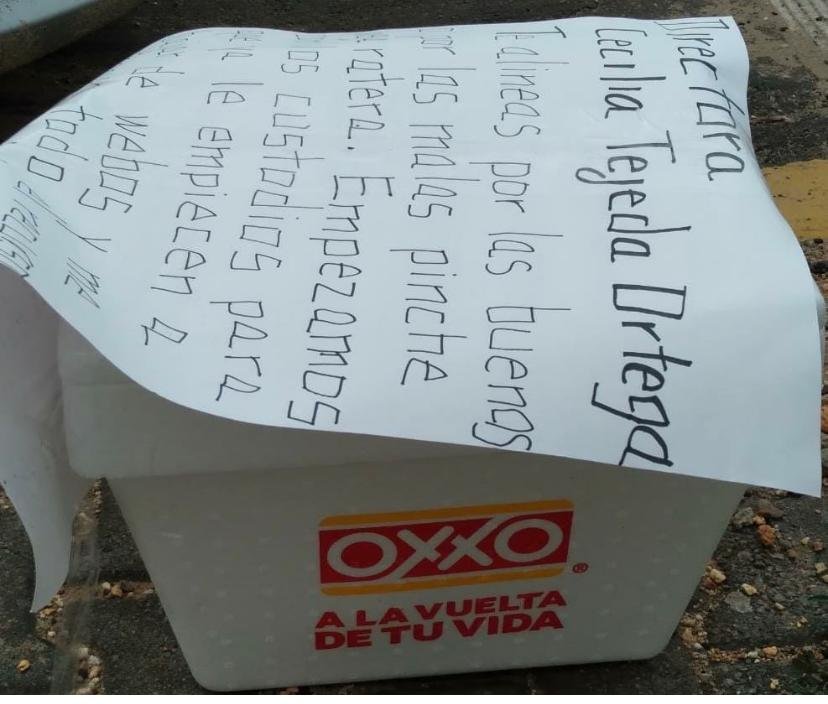 Directora
Cecilia Tejeda Ortega
Te alineas por las buenas
por las malas pinche
ratera. Empezamos
los custodios para
le empiecen a
de webos y me
todo
OXXO
A LA VUELTA
DE TU VIDA